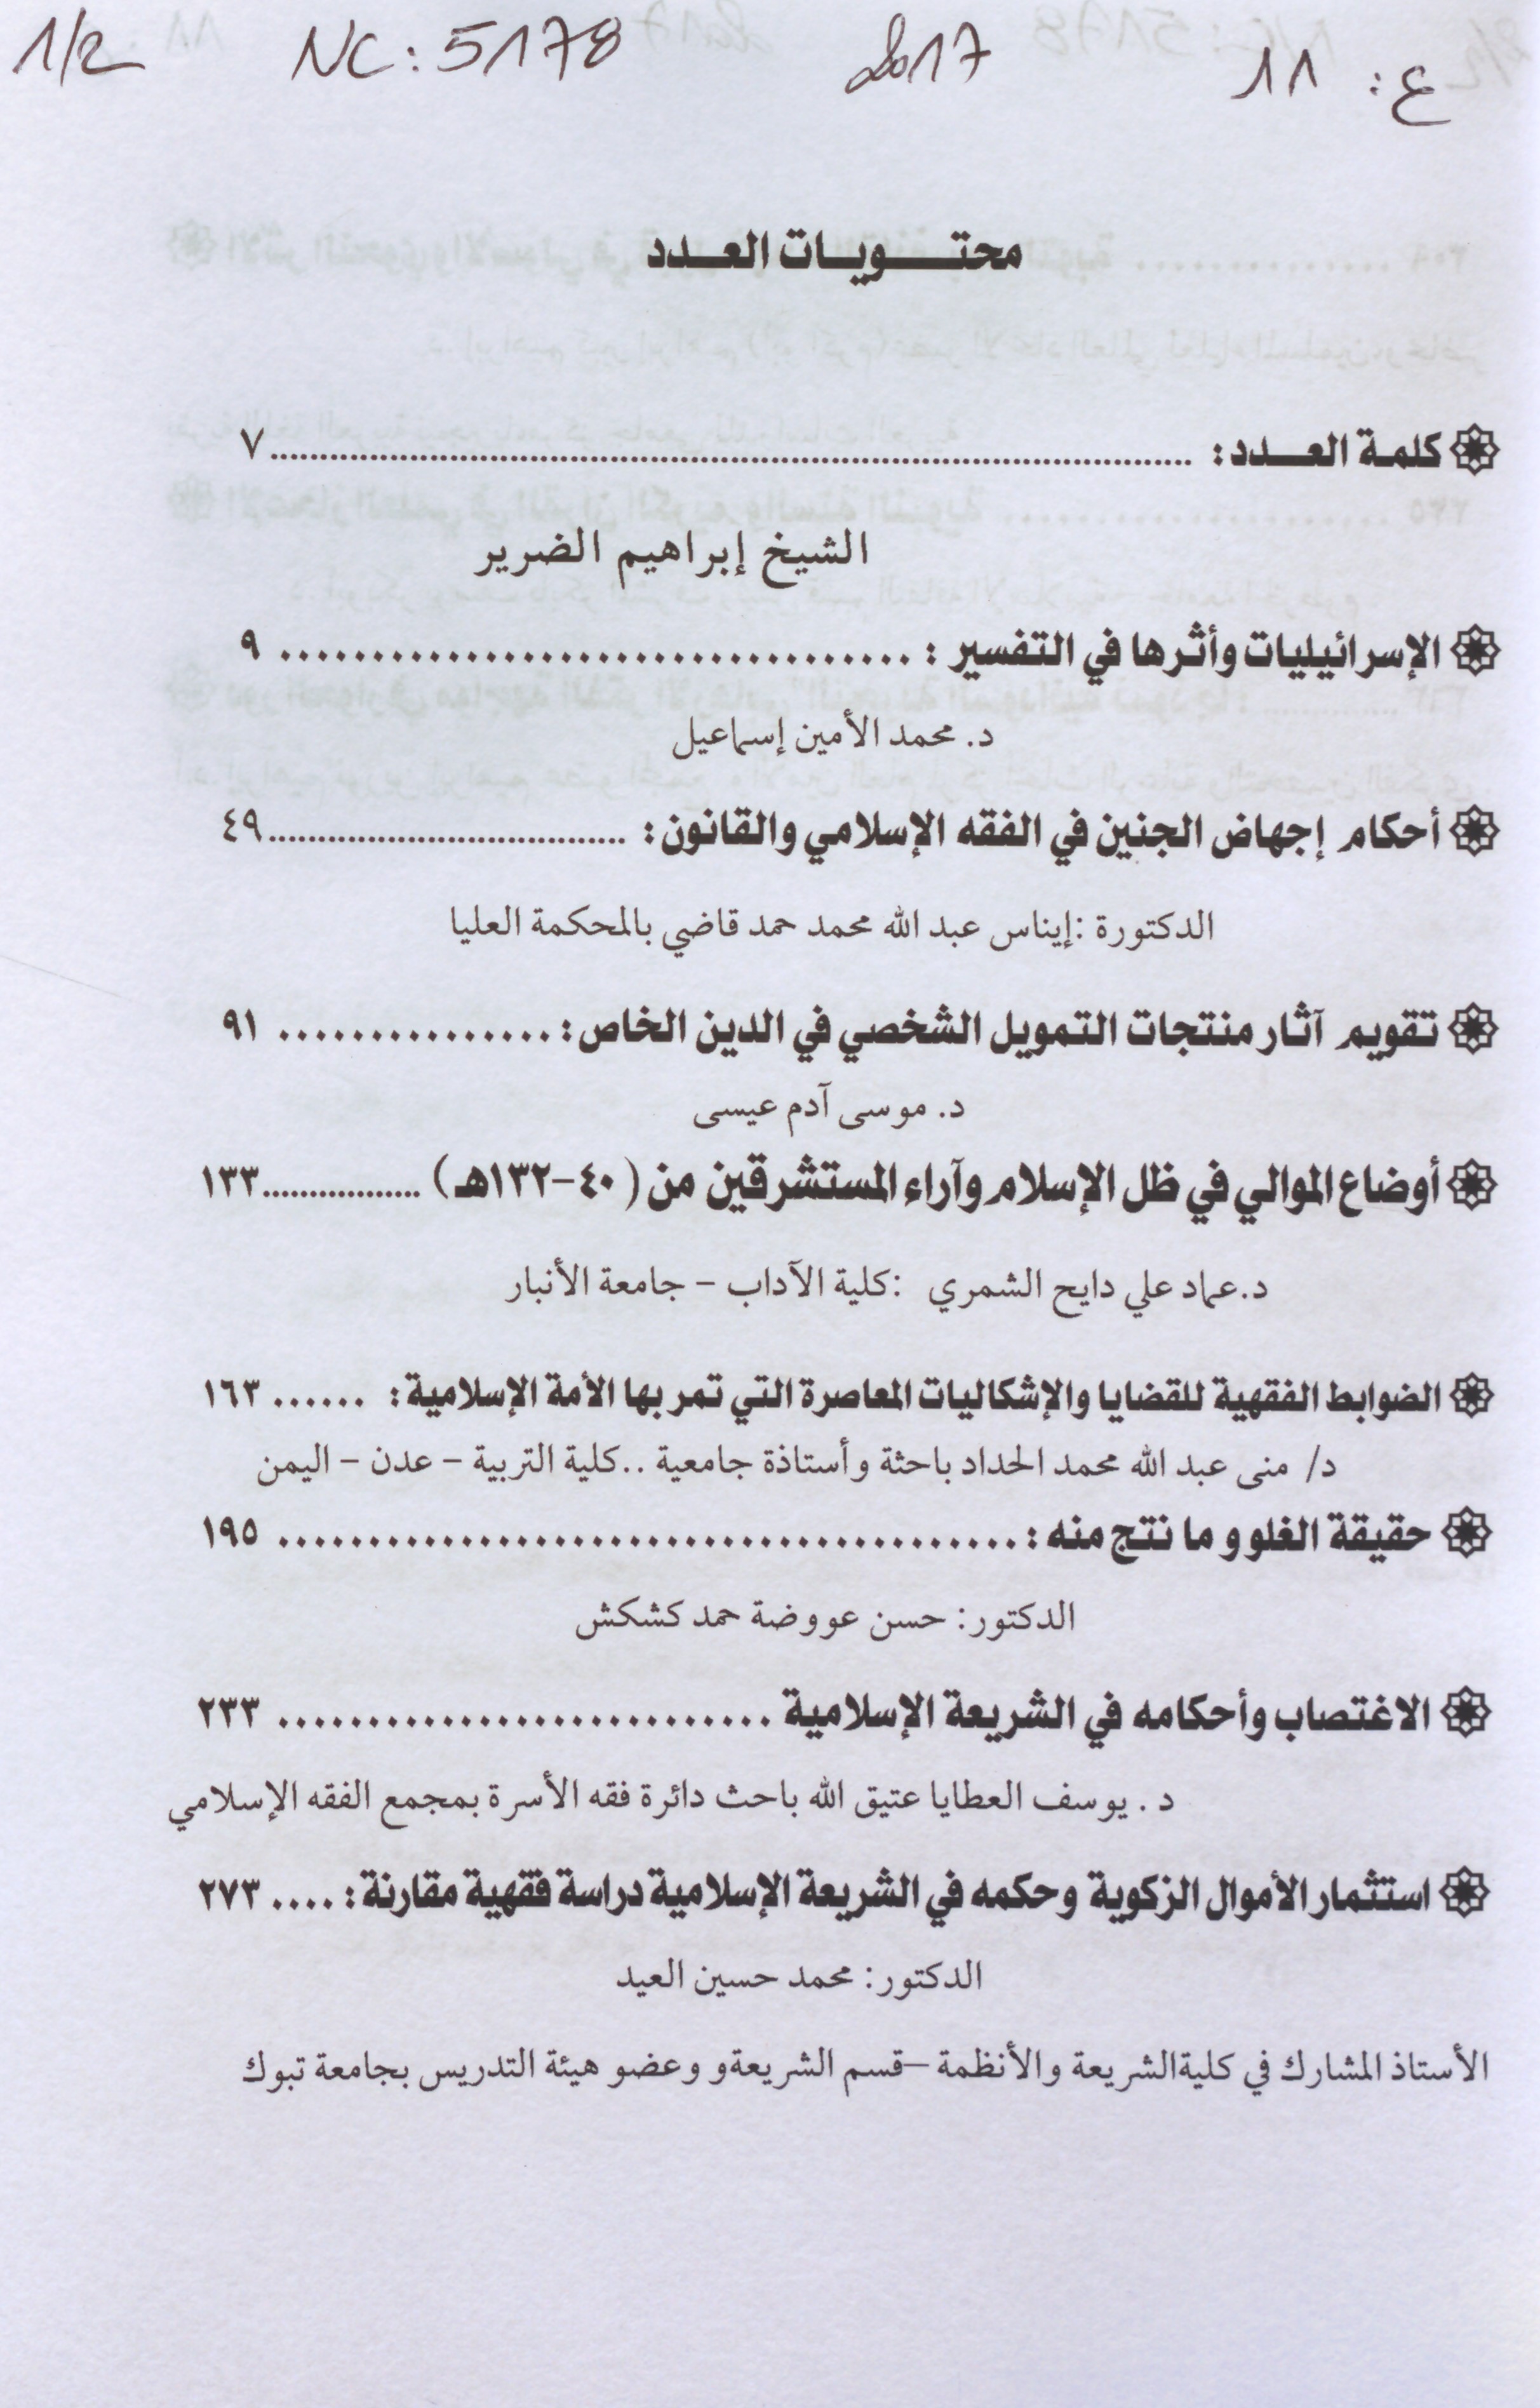 1/2 NC: 5178 2017 ع: 11
محتـــويـات العـدد
كلمة العـدد: ...... ٧
الشيخ إبراهيم الضرير
الإسرائيليات وأثرها في التفسير : ...... ٩
د. محمد الأمين إسماعيل
أحكام إجهاض الجنين في الفقه الإسلامي والقانون: ...... ٤٩
الدكتورة :إيناس عبد الله محمد حمد قاضي بالمحكمة العليا
تقويم آثار منتجات التمويل الشخصي في الدين الخاص: ...... ٩١
د. موسى آدم عيسى
أوضاع الموالي في ظل الإسلام وآراء المستشرقين من ( ٤٠-١٣٢هـ) ...... ١٣٣
د.عماد علي دايح الشمري :كلية الآداب - جامعة الأنبار
الضوابط الفقهية للقضايا والإشكاليات المعاصرة التي تمر بها الأمة الإسلامية: ...... ١٦٣
د/ منى عبد الله محمد الحداد باحثة وأستاذة جامعية ..كلية التربية - عدن - اليمن
حقيقة الغلو و ما نتج منه : ...... ١٩٥
الدكتور: حسن عووضة حمد كشكش
الاغتصاب وأحكامه في الشريعة الإسلامية ...... ٢٣٣
د . يوسف العطايا عتيق الله باحث دائرة فقه الأسرة بمجمع الفقه الإسلامي
استثمار الأموال الزكوية وحكمه في الشريعة الإسلامية دراسة فقهية مقارنة: .... ٢٧٣
الدكتور: محمد حسين العيد
الأستاذ المشارك في كليةالشريعة والأنظمة –قسم الشريعةو وعضو هيئة التدريس بجامعة تبوك